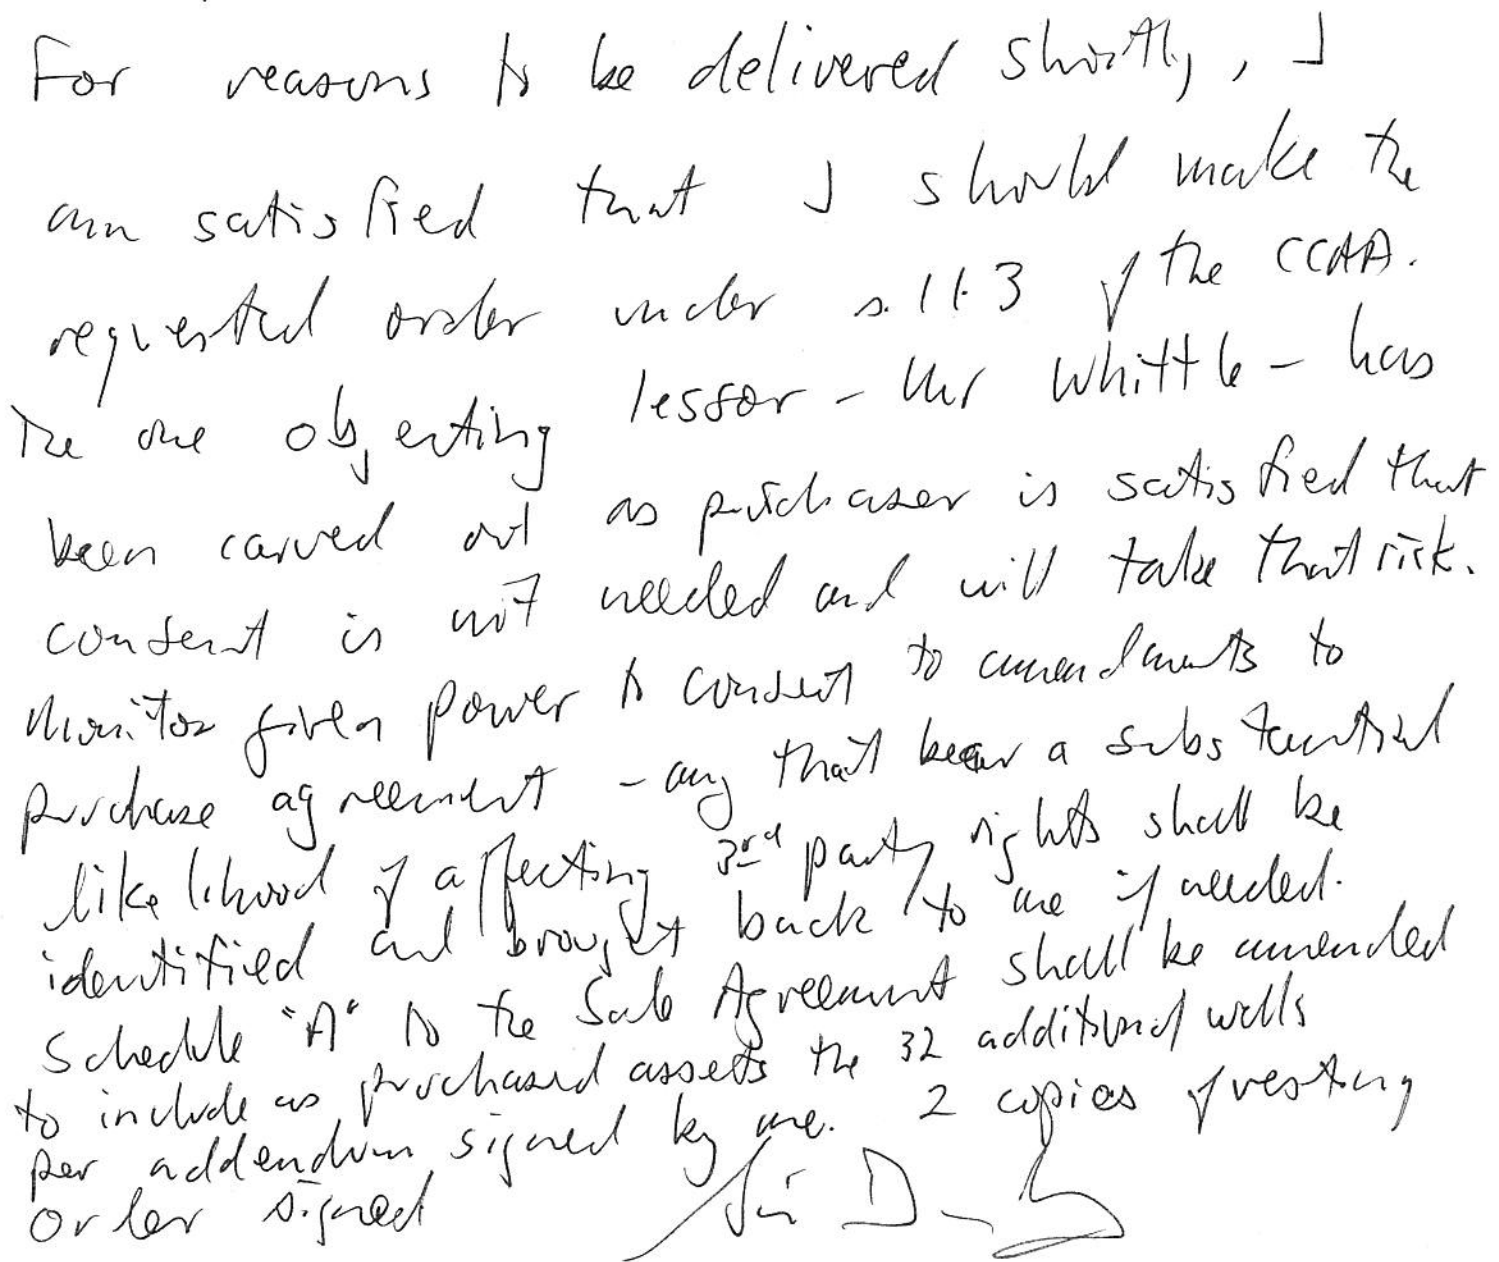 For reasons to be delivered shortly, I
am satisfied that I should make the
requested order under s. 11.3 of the CCAA.
The one objecting lessor - Mr Whittle - has
been carved out as purchaser is satisfied that
consent is not needed and will take that risk.
Monitor given power to consent to amendments to
purchase agreement - any that bear a substantial
likelihood of affecting 3rd party rights shall be
identified and brought back to me if needed.
Schedule "A" to the Sale Agreement shall be amended
to include as purchased assets the 32 additional wells
per addendum signed by me. 2 copies of vesting
order signed